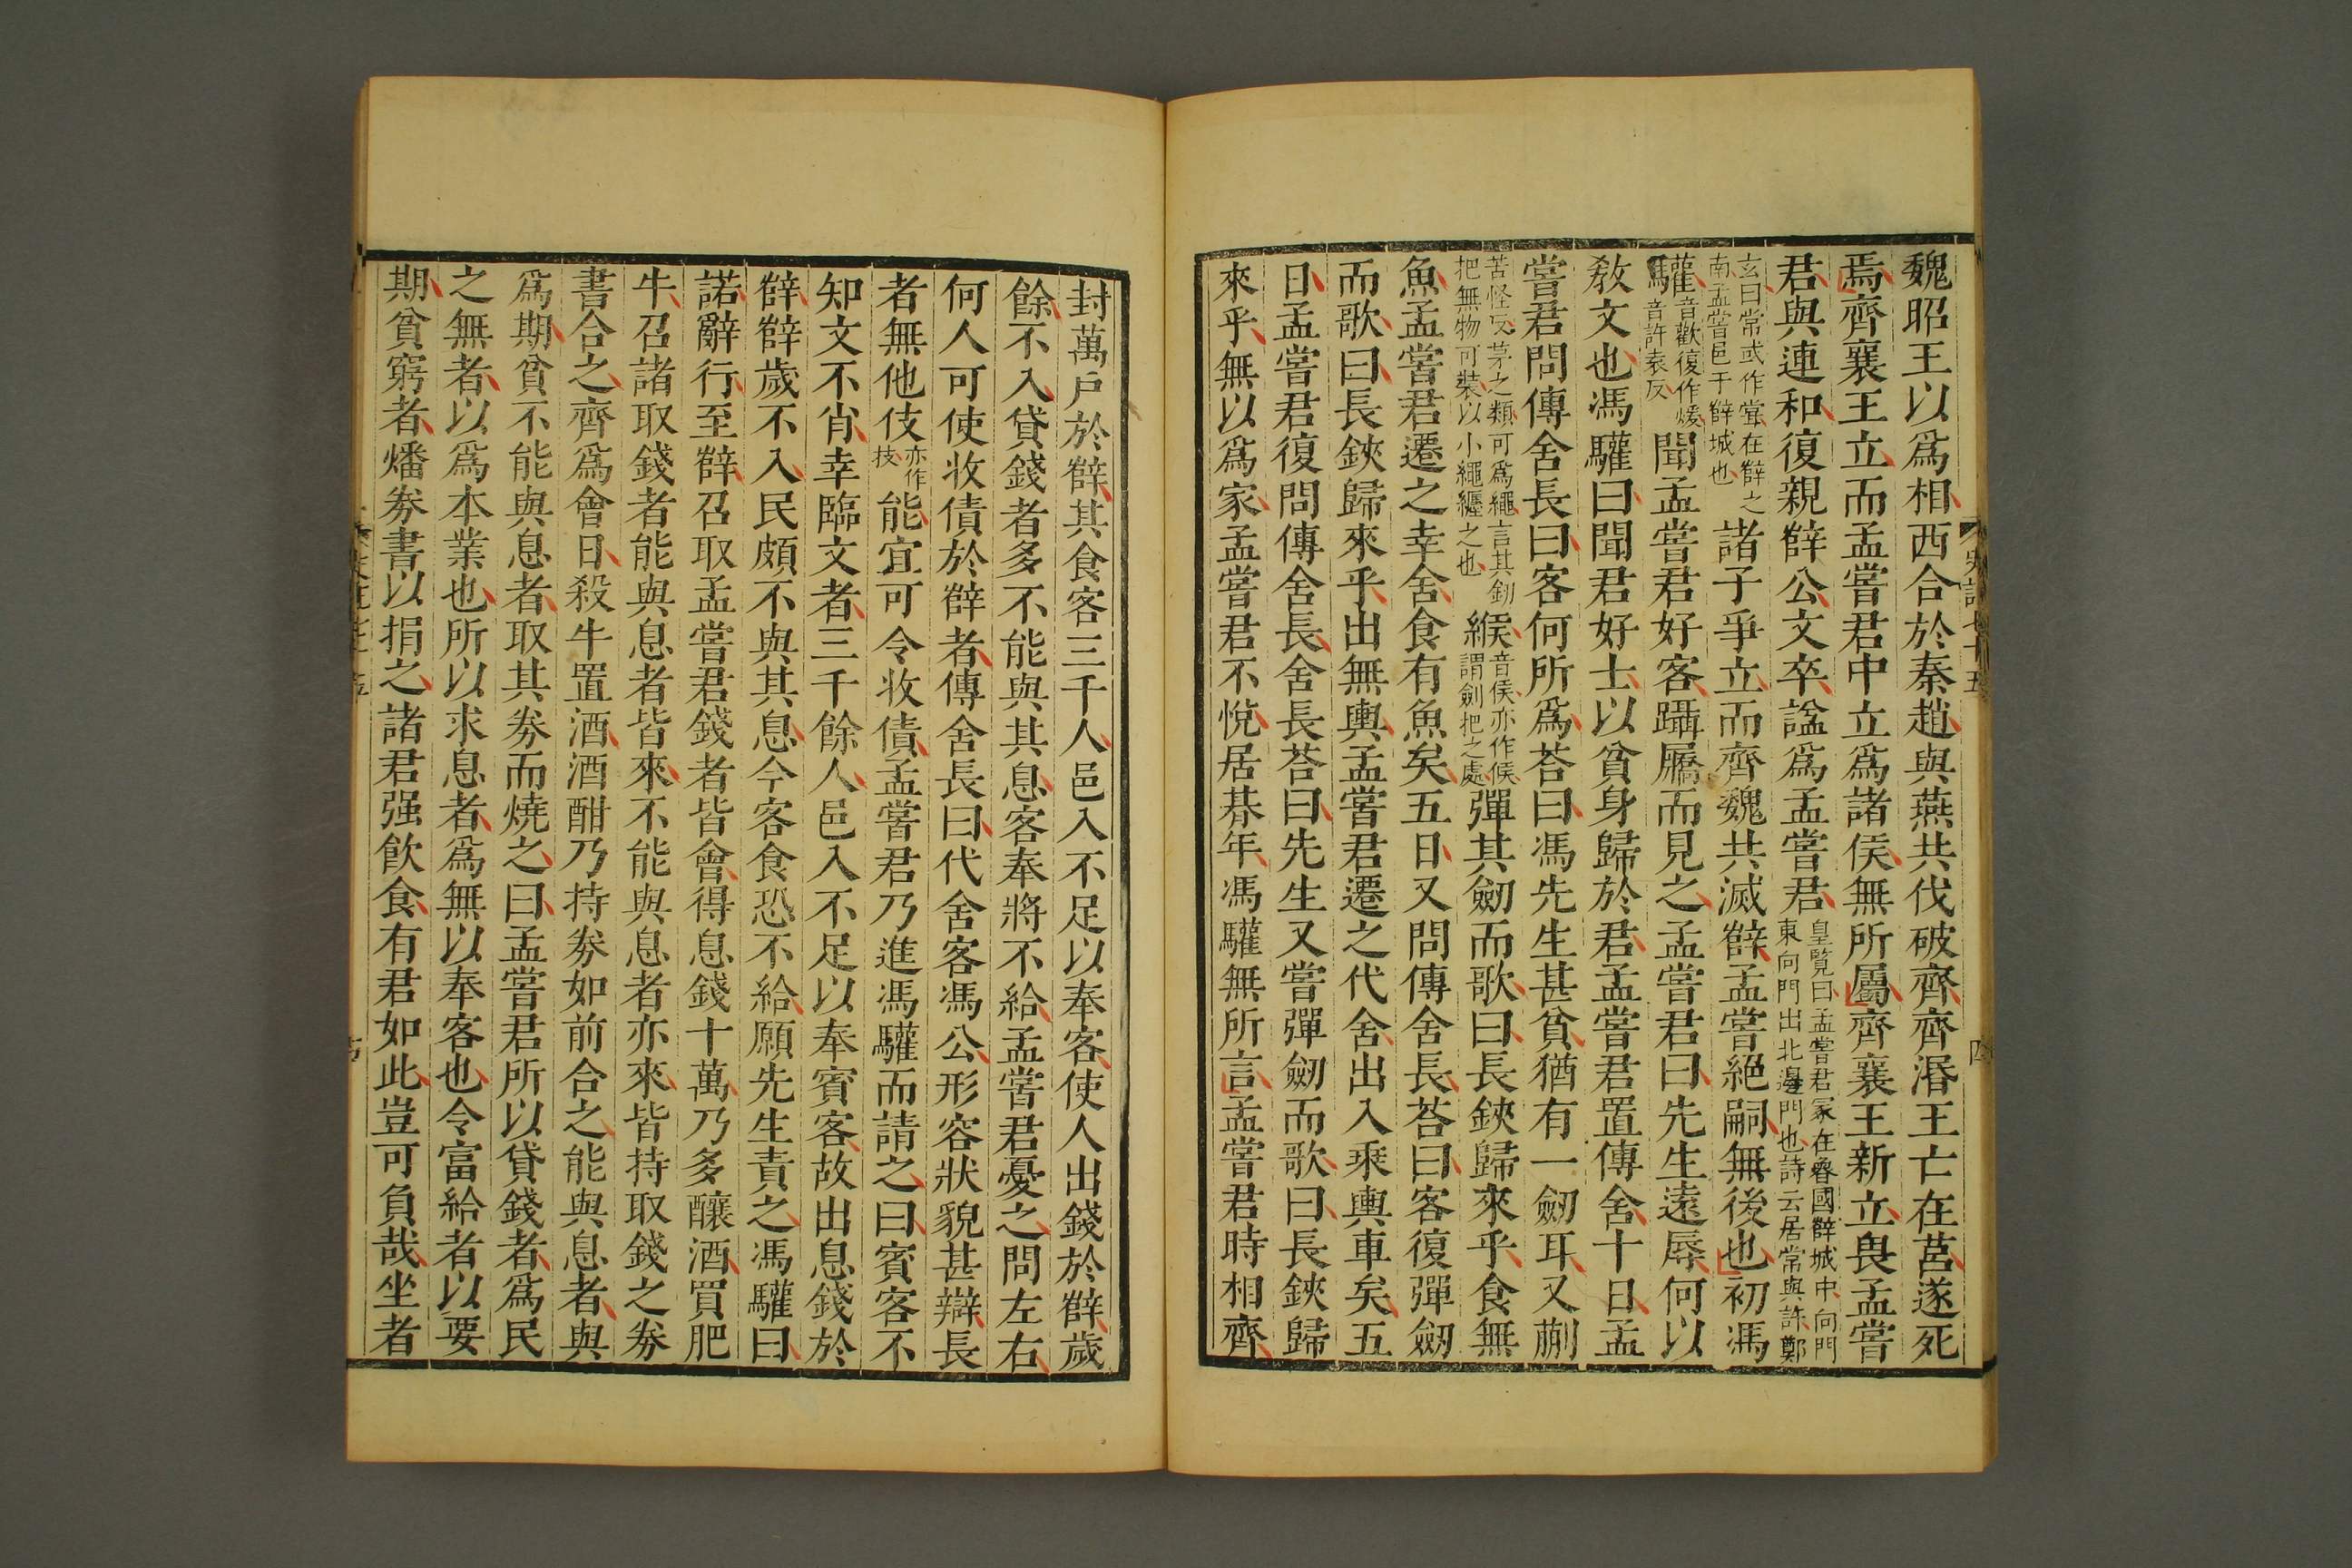 魏昭王以爲相西合於秦趙與燕共伐破齊齊湣王亡在莒遂死
焉齊襄王立而孟嘗君中立爲諸侯無所屬齊襄王新立畏孟嘗
君與連和復親薛公文卒諡爲孟嘗君皇覽曰孟嘗君冢在魯國薛城中向門
東向門出北邊門也詩云居常與許鄭
玄曰常或作嘗在薛之
南孟嘗邑于薛城也諸子爭立而齊魏共滅薛孟嘗絕嗣無後也初馮
驩音歡復作煖
音許袁反聞孟嘗君好客躡屩而見之孟嘗君曰先生遠辱何以
敎文也馮驩曰聞君好士以貧身歸於君孟嘗君置傳舍十日孟
嘗君問傳舍長曰客何所爲荅曰馮先生甚貧猶有一劒耳又蒯
苦怪反茅之類可爲繩言其劒
把無物可裝以小繩纏之也緱音侯亦作候
謂劍把之處彈其劒而歌曰長鋏歸來乎食無
魚孟嘗君遷之幸舍食有魚矣五日又問傳舍長荅曰客復彈劒
而歌曰長鋏歸來乎出無輿孟嘗君遷之代舍出入乘輿車矣五
日孟嘗君復問傳舍長舍長荅曰先生又嘗彈劒而歌曰長鋏歸
來乎無以爲家孟嘗君不悅居朞年馮驩無所言孟嘗君時相齊
封萬戶於薛其食客三千人邑入不足以奉客使人出錢於薛歲
餘不入貸錢者多不能與其息客奉將不給孟嘗君憂之問左右
何人可使收債於薛者傳舍長曰代舍客馮公形容狀貌甚辯長
者無他伎亦作
技能宜可令收債孟嘗君乃進馮驩而請之曰賓客不
知文不肖幸臨文者三千餘人邑入不足以奉賓客故出息錢於
薛薛歲不入民頗不與其息今客食恐不給願先生責之馮驩曰
諾辭行至薛召取孟嘗君錢者皆會得息錢十萬乃多釀酒買肥
牛召諸取錢者能與息者皆來不能與息者亦來皆持取錢之券
書合之齊爲會日殺牛置酒酒酣乃持券如前合之能與息者與
爲期貧不能與息者取其券而燒之曰孟嘗君所以貸錢者爲民
之無者以爲本業也所以求息者爲無以奉客也令富給者以要
期貧窮者燔券書以捐之諸君强飮食有君如此豈可負哉坐者